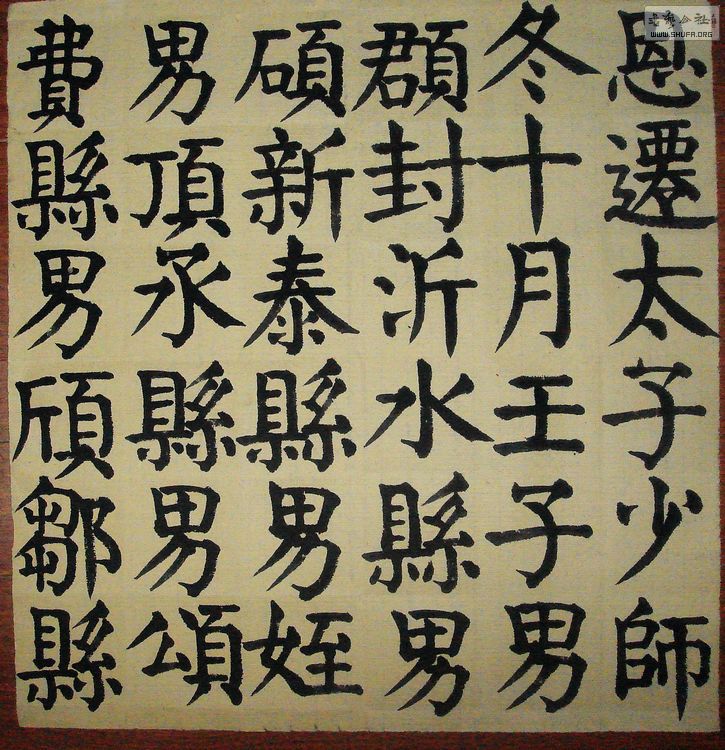 恩遷太子少師
冬十月壬子男
頵封沂水縣男
碩新泰縣男姪
男頂承縣男頌
費縣男頎鄒縣
WWW.SHUFA.ORG